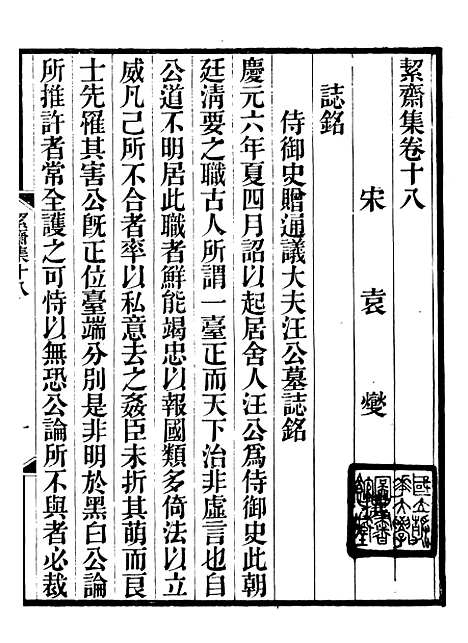 絜齋集卷十八
宋袁燮
誌銘
侍御史贈通議大夫汪公墓誌銘
慶元六年夏四月詔以起居舍人汪公爲侍御史此朝
廷淸要之職古人所謂一臺正而天下治非虛言也自
公道不明居此職者鮮能竭忠以報國類多倚法以立
威凡己所不合者率以私意去之姦臣未折其萌而良
士先罹其害公旣正位臺端分別是非明於黑白公論
所推許者常全護之可恃以無恐公論所不與者必裁
絜齋集十八
一